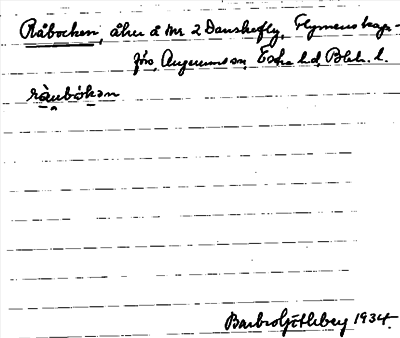 Råbocken, åker å Nr 2 Danskefly, Flymens kap-
förs, Augerums sn, Östra hd, Blek. l.
ràɐubókən
Barbro Götleberg 1934.